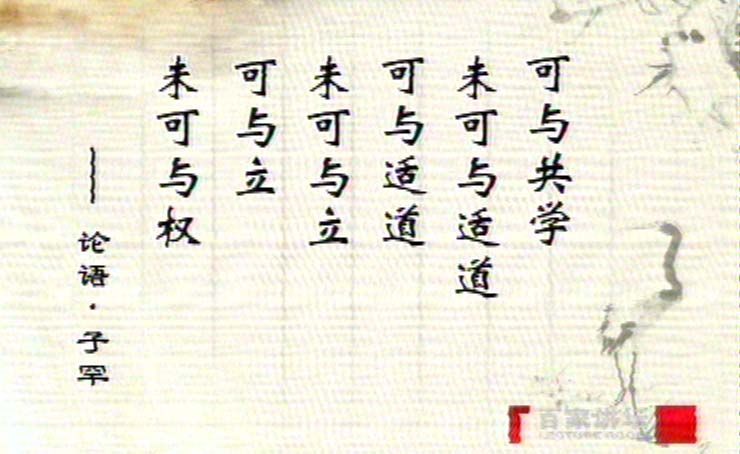 可与共学
未可与适道
可与适道
未可与立
可与立
未可与权
——论语·子罕
百家讲坛
LECTURE ROOM